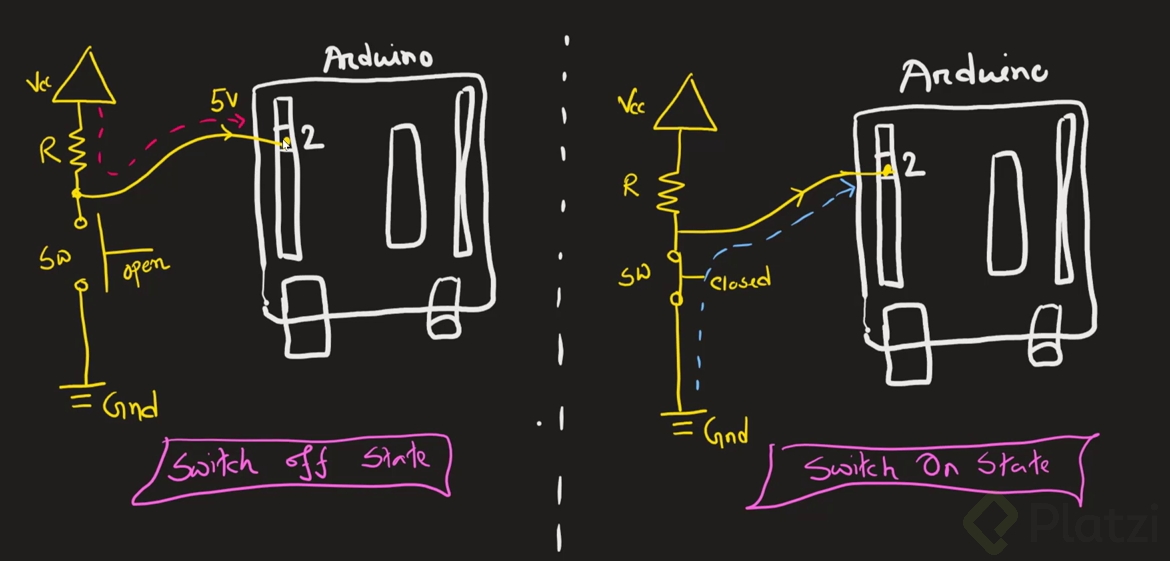 Arduino
Vcc
5V
R
2
SW
open
Gnd
Switch off State
Arduino
Vcc
2
R
SW
Closed
Gnd
Switch On State
Platzi